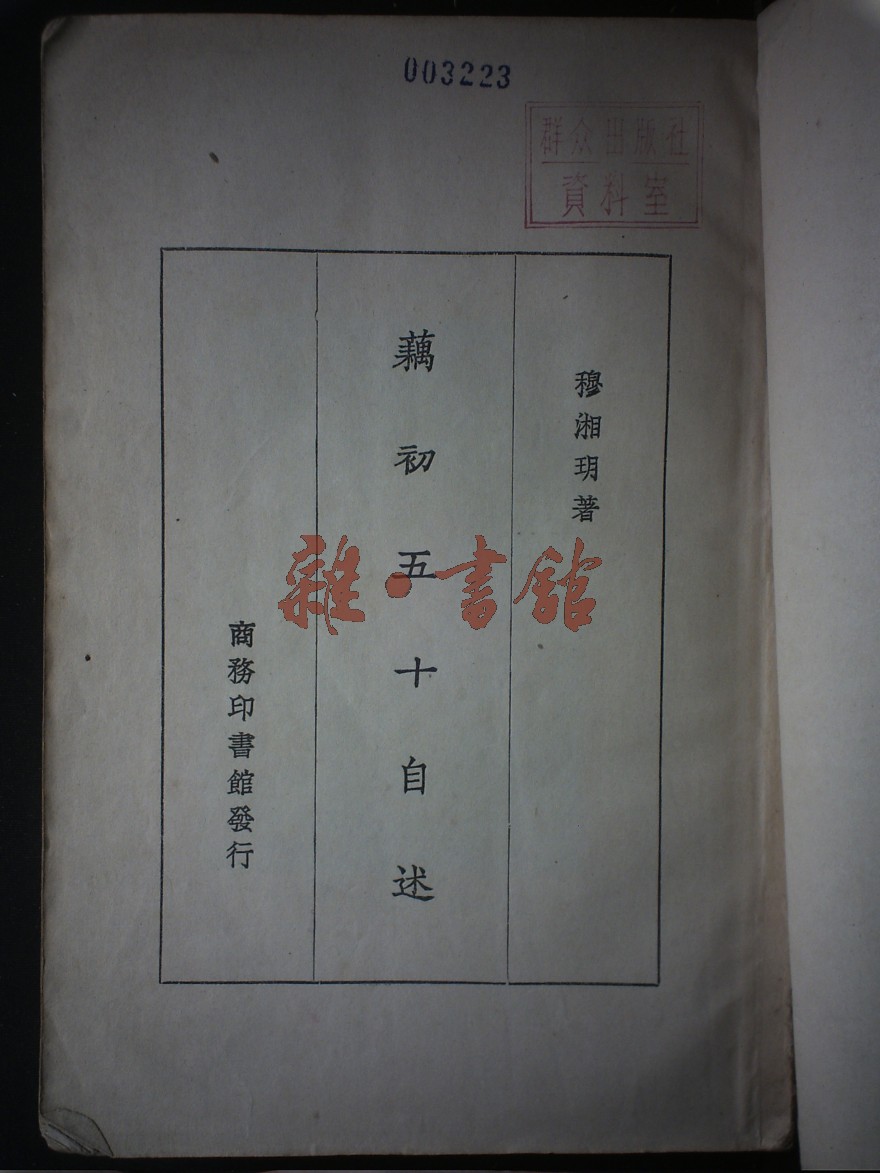 003223
群众出版社
資料室
穆湘玥著
藕初五十自述
商務印書館發行
雜·書館